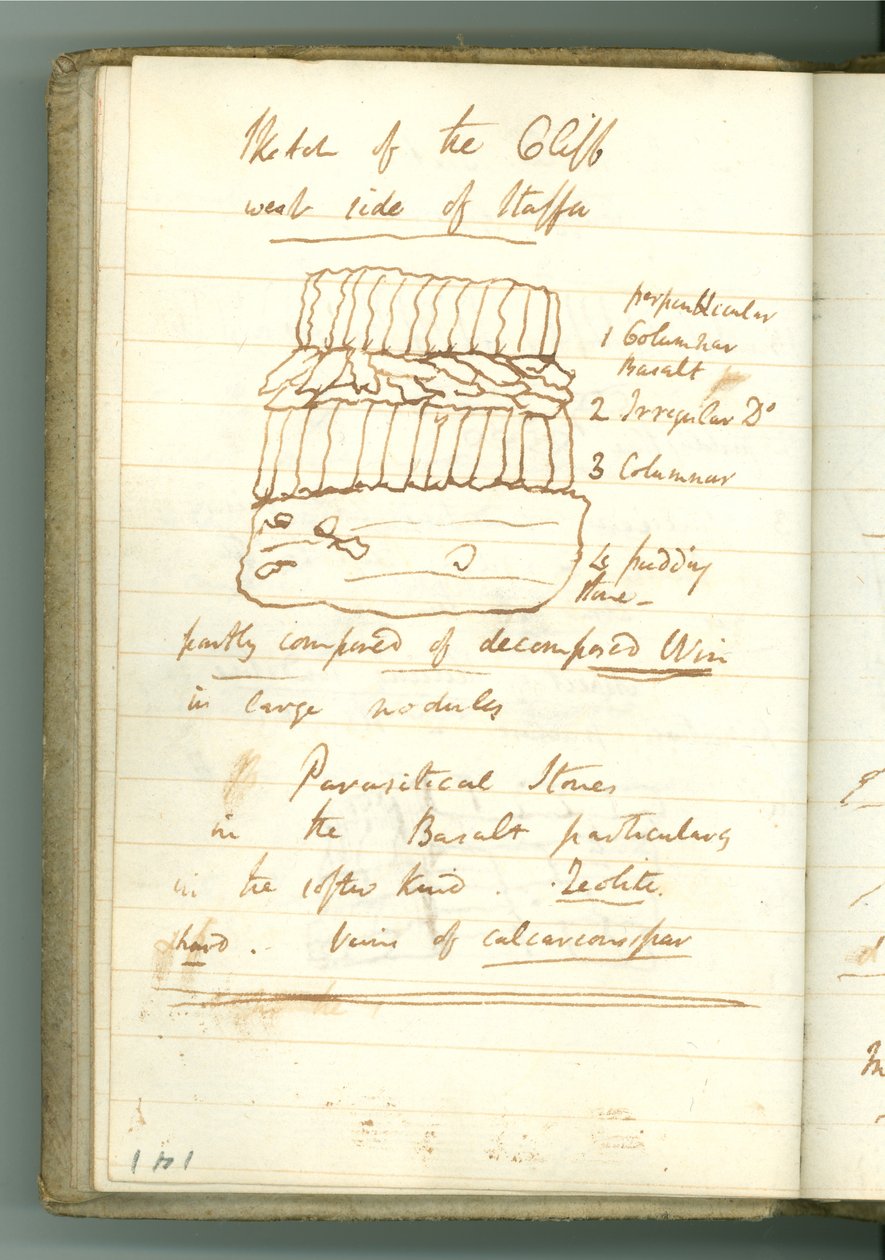 Sketch of the Cliff
west side of Staffa
perpendicular
1 Columnar
Basalt
2 Irregular Do
3 Columnar
4 pudding
Stone -
partly composed of decomposed Win
in large nodules
Parasitical Stones
in the Basalt particularly
in the softer kind. Zeolite.
hard. - Veins of calcareous spar
141